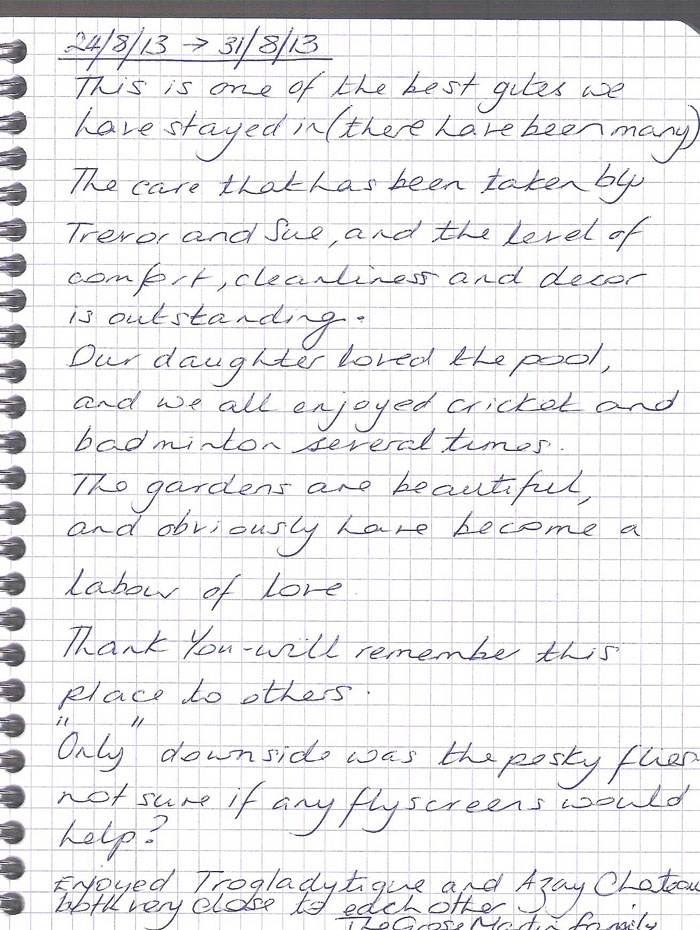 24/8/13 → 31/8/13
This is one of the best gites we
have stayed in (there have been many)
The care that has been taken by
Trevor and Sue, and the level of
comfort, cleanliness and decor
is outstanding.
Our daughter loved the pool,
and we all enjoyed cricket and
badminton several times.
The gardens are beautiful,
and obviously have become a
labour of love.
Thank You - will remember this
place to others.
"Only" downside was the pesky flies
not sure if any flyscreens would
help?
Enjoyed Trogladytique and Azay Chateau
both very close to each other
The Grose Martin family